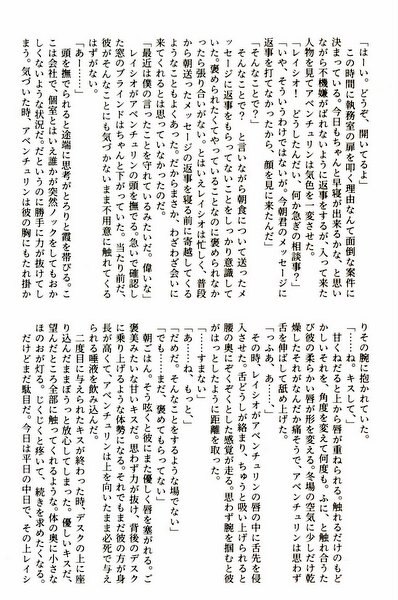 「はーい。どうぞ、開いてるよ」
この時間に執務室の扉を叩く理由なんて面倒な案件に
決まっている。今日もちゃんと早寝が出来るかな、と思い
ながら不機嫌がばれないように返事をすれば、入って来た
人物を見てアベンチュリンは気色を一変させた。
「レイシオ！　どうしたんだい、何か急ぎの相談事？」
「いや、そういうわけではないが、今朝君のメッセージに
返事を打てなかったから、顔を見に来たんだ」
「そんなことで？」
そんなことで？　と言いながら朝食について送ったメ
ッセージに返事をもらってないことをしっかり意識して
いた。褒められたくてやっていることなのに褒められなか
ったら張り合いがない。とはいえレイシオは忙しく、普段
から朝送ったメッセージの返事を寝る前に寄越してくる
ようなこともよくあった。だからまさか、わざわざ会いに
来てくれるとは思っていなかったのだ。
「最近は僕の言ったことを守れているみたいだ。偉いな」
レイシオがアベンチュリンの頭を撫でる。急いで確認し
た窓のブラインドはちゃんと下がっていた。当たり前だ、
彼がそんなことにも気づかないまま不用意に触れてくる
はずがない。
「あ……」
頭を撫でられると途端に思考がとろりと霞を帯びる。こ
こは会社で、個室とはいえ誰かが突然ノックをしてもおか
しくないような状況だ。だというのに勝手に力が抜けてし
まう。気づいた時、アベンチュリンは彼の胸にもたれ掛か
りその腕に抱かれていた。
「……ね。キスして、」
甘くねだると上から唇が重ねられる。触れるだけのもど
かしいそれを、角度を変えて何度も。ふに、と触れ合うた
び彼の柔らかい唇が形を変える。冬場の空気に少しだけ乾
燥したそれがなんだか痛そうで、アベンチュリンは思わず
舌を伸ばして舐め上げた。
「っふぁ、あ……」
その時、レイシオがアベンチュリンの唇の中に舌先を侵
入させた。舌どうしが絡まり、ちゅうと吸い上げられると
腰の奥にぞくぞくとした感覚が走る。思わず腕を掴むと彼
がはっとしたように距離を取った。
「……すまない」
「あ……ね、もっと、」
「だめだ。そんなことをするような場でない」
「でも……まだ、褒めてもらってない」
朝ごはん。そう呟くと彼にまた優しく唇を塞がれる。ご
褒美みたいな甘いキスだ。思わず力が抜け、背後のデスク
に乗り上げるような体勢になる。それでもまだ彼の方が身
長が高くて、アベンチュリンは上を向いたまま必死で与え
られる唾液を飲み込んだ。
二度目に与えられたキスが終わった時、デスクの上に座
り込んだままぼうっと放心してしまった。優しいキスだ、
望んだところ全部に触ってくれるような。体の奥に小さな
ほのおが灯る。じくじくと疼いて、続きを求めたくなる。
だけどまだ駄目だ。今日は平日の中日で、その上レイシ